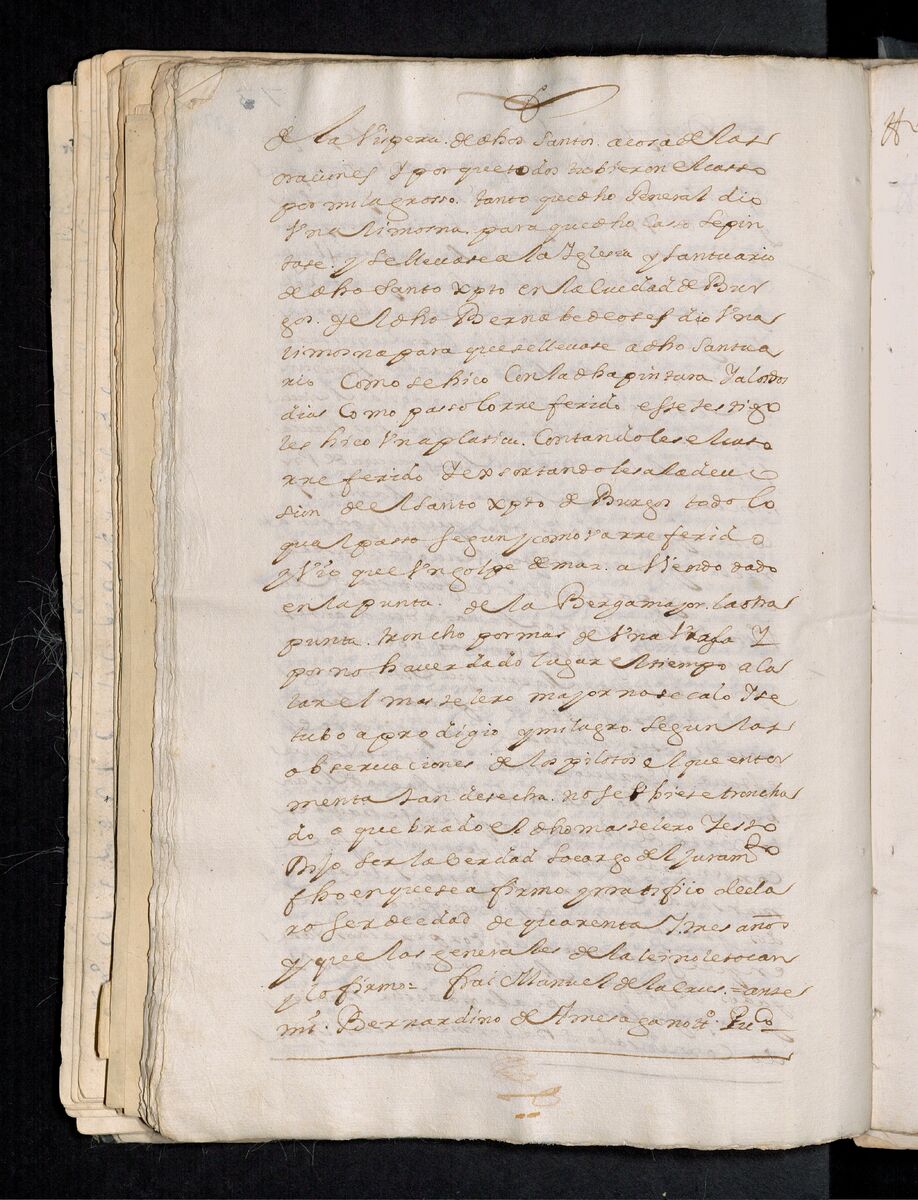 de la Vispera. de dhos Santos. a cora de las
oraciones Y por que todos tubieron el casso
por milagrosso. tanto que dho General dio
Vna limosna para que dho Casso se pin
tase. y se llevase a la Yglesia y santuario
de dho Santo Xpto en la Ciudad de Bur
gos. y el dho Bernabe de osef dio Vna
limosna para que se llevase a dho santua
rio Como se hico Con la dha pintura Y a los dos
dias Como passo lo rreferido esse testigo
les hico Vna platica. Contandoles el caso
rreferido Y exsortandoles a la devo
sion del Santo Xpto de Burgos todo lo
qual passo segun y como va rreferido
y Vio que Vn golpe de mar. aViendo dado
en la punta. de la Berga major. la otra
punta. troncho por mas de Vna Vrasa Y
por no haver dado lugar el tiempo a ca
lar el mastelero major no se calo Y se
tubo a prodigio y milagro segun las
observaciones de los pilotos el que en tor
menta tan desecha. no se Vbiese troncha
do o quebrado el dho mastelero Y esto
Dijo ser la berdad so cargo del juramto
fho en que se afirmo y rratifico decla
ro ser de edad de quarenta Y tres años
y que las generales de la lei no le tocan
y lo firmo= frai Manuel de la Crus = ante
mi. Bernardino de Amesaga nott.o Puco